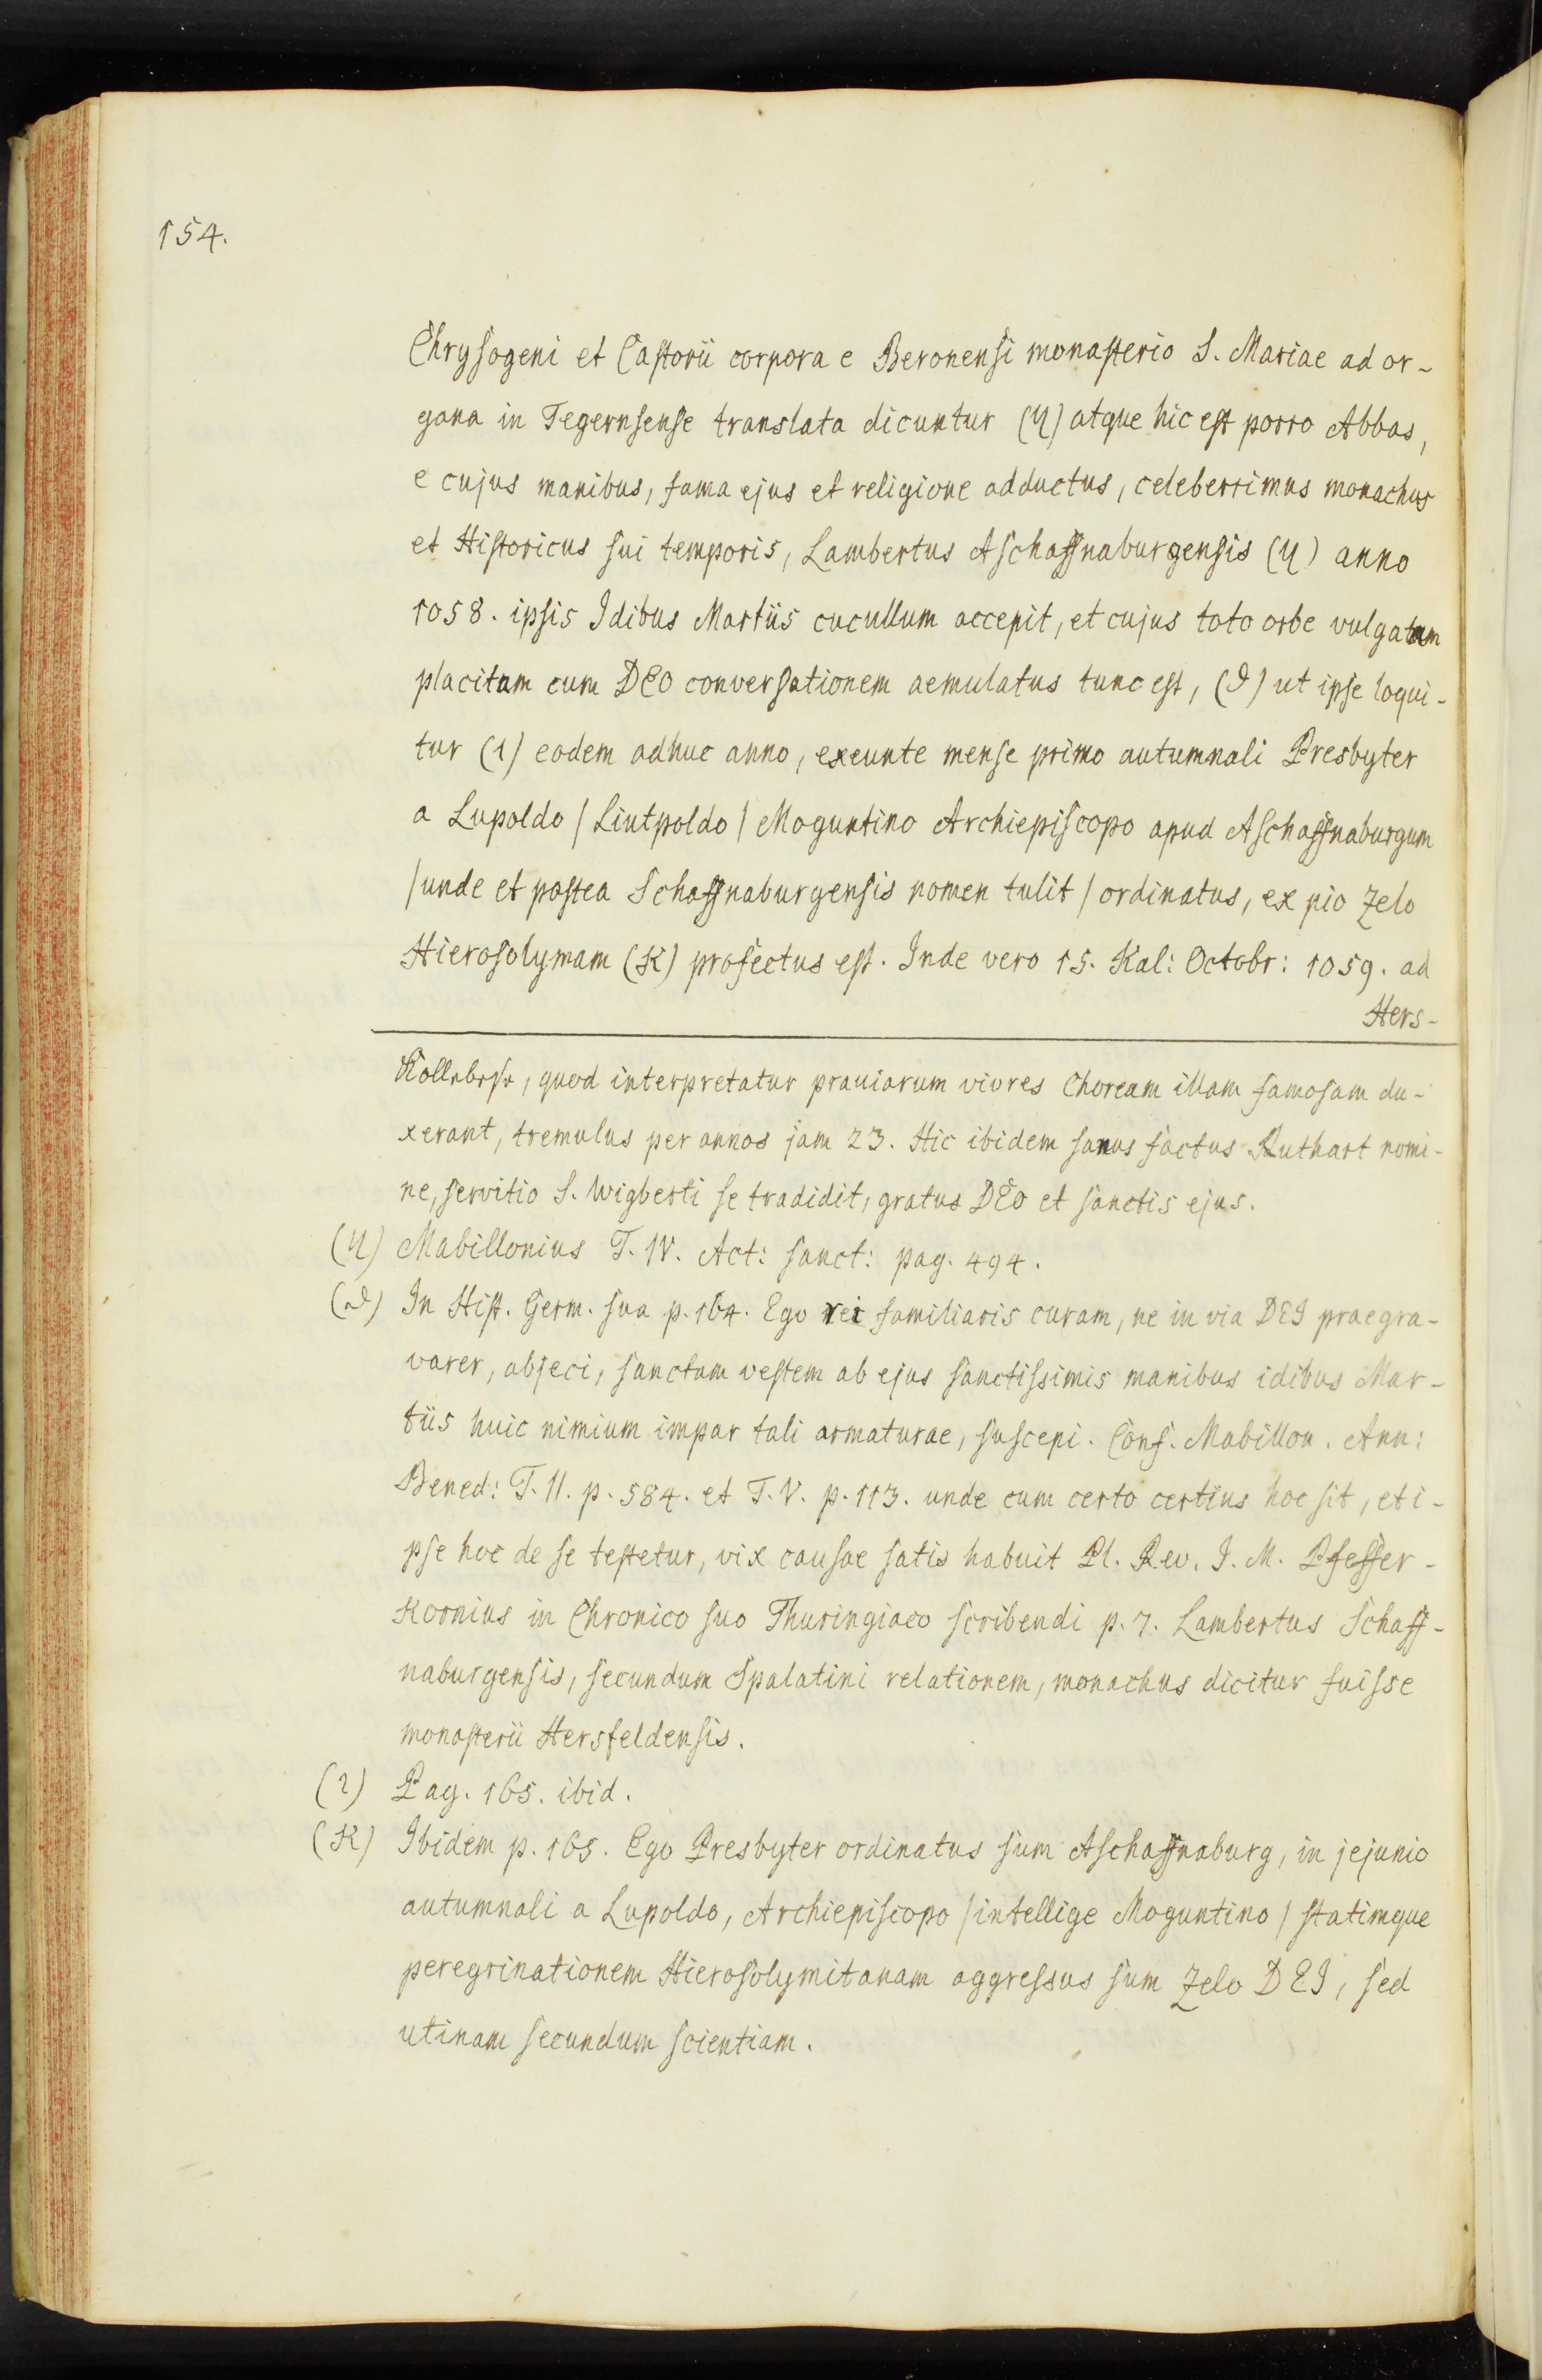 154.
Chrysogeni et Castorii corpora e Beronensi monasterio S. Mariae ad or-
gana in Tegernsense translata dicuntur (η) atque hic est porro Abbas,
e cujus manibus, fama ejus et religione adductus, celeberrimus monachus
et Historicus sui temporis, Lambertus Aschaffnaburgensis (η) anno
1058. ipsis Idibus Martiis cucullum accepit, et cujus toto orbe vulgatam
placitam cum DEO conversationem aemulatus tunc est, (ϑ) ut ipse loqui-
tur (ι) eodem adhuc anno, exeunte mense primo autumnali Presbyter
a Lupoldo / Liutpoldo / Moguntino Archiepiscopo apud Aschaffnaburgum
/ unde et postea Schaffnaburgensis nomen tulit / ordinatus, ex pio zelo
Hierosolymam (K) profectus est. Inde vero 15. Kal: Octobr: 1059. ad
Hers-
quod interpretatur praviarum viores Choream illam famosam du-
xerant, tremulus per annos jam 23. Hic ibidem sanus factus Ruthart nomi-
ne, servitio S. Wigberti se tradidit, gratus DEO et sanctis ejus.
(η) Mabillonius T. IV. Act: sanct: pag. 494.
(ϑ) In Hist. Germ. sua p. 164. Ego rei familiaris curam, ne in via DEI praegra-
varer, abjeci, sanctam vestem ab ejus sanctissimis manibus idibus Mar-
tiis huic nimium impar tali armaturae, suscepi. Conf. Mabillon. Ann:
Bened: T. II. p. 584. et T. V. p. 113. unde cum certo certius hoc sit, et i-
pse hoc de se testetur, vix causae satis habuit Pl. Rev. J. M. Pfeffer-
Kornius in Chronico suo Thuringiaco scribendi p. 7. Lambertus Schaff-
naburgensis, secundum Spalatini relationem, monachus dicitur fuisse
monasterii Hersfeldensis.
(ι) Pag. 165. ibid.
(K) Ibidem p. 165. Ego Presbyter ordinatus sum Aschaffnaburg, in jejunio
autumnali a Lupoldo, Archiepiscopo / intellige Moguntino / statimque
peregrinationem Hierosolymitanam aggressus sum zelo DEI, sed
utinam secundum scientiam.